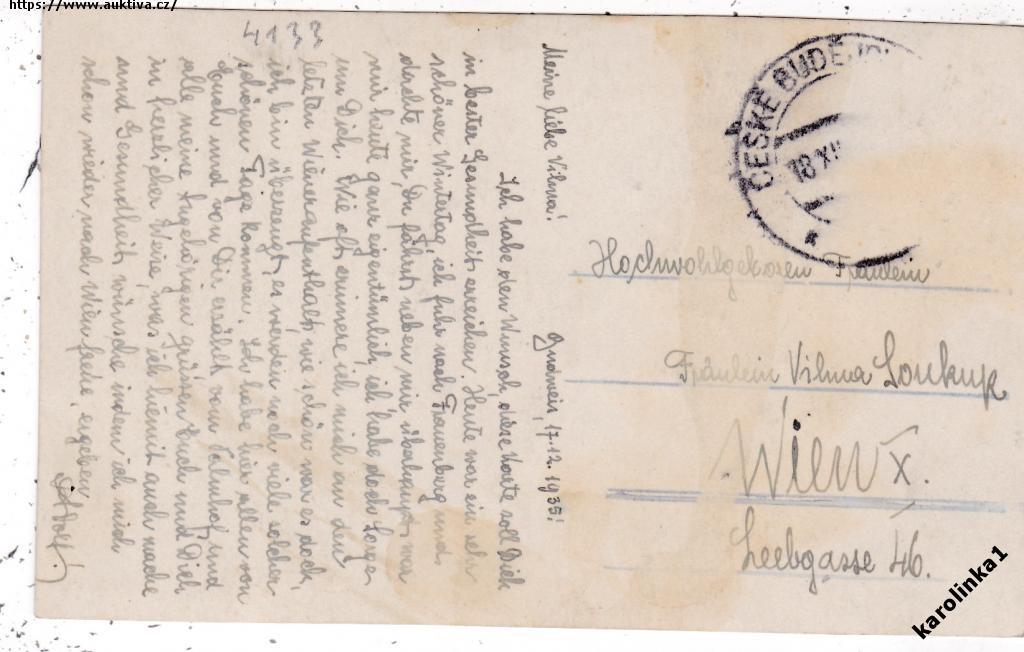 https://www.auktiva.cz/
4133
Meine liebe Vilma! Budweis, 17.12.1935!
Ich habe den Wunsch, diese Karte soll Dich
in bester Gesundheit erreichen. Heute war ein sehr
schöner Wintertag, ich fuhr nach Frauenberg und
dachte mir, Du fährst neben mir überhaupt war
mir heute ganz eigentümlich, ich habe doch Sorgen
um Dich. Wie oft erinnere ich mich an den
letzten Wieneraufenthalt, wie schön war es doch,
ich bin überzeugt, es werden noch viele solcher
schönen Tage kommen. Ich habe hier allen von
Euch und von Dir erzählt vom und
alle meine Angehörigen grüssen Euch und Dich
in herzlicher Weise, was ich hiemit auch mache
und Gesundheit wünsche indem ich mich
schon wieder nach Wien freue, ergeben
Adolf!
ČESKÉ BUDĚJOV
18.XII
Hochwohlgeboren Fräulein
Fräulein Vilma Soukup
Wien X.
Leebgasse 46.
karolinka1